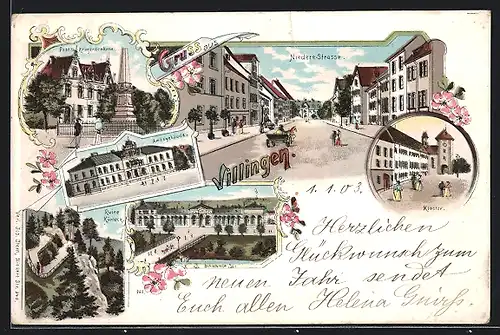 Post u. Kriegerdenkmal.
Gruss aus
Niedere-Strasse.
Amtsgebäude.
Villingen.
1.1.03.
Kloster.
Ruine
Bahnhof.
Herzlichen
Glückwunsch zum
neuen Jahr sendet
Euch allen Helena